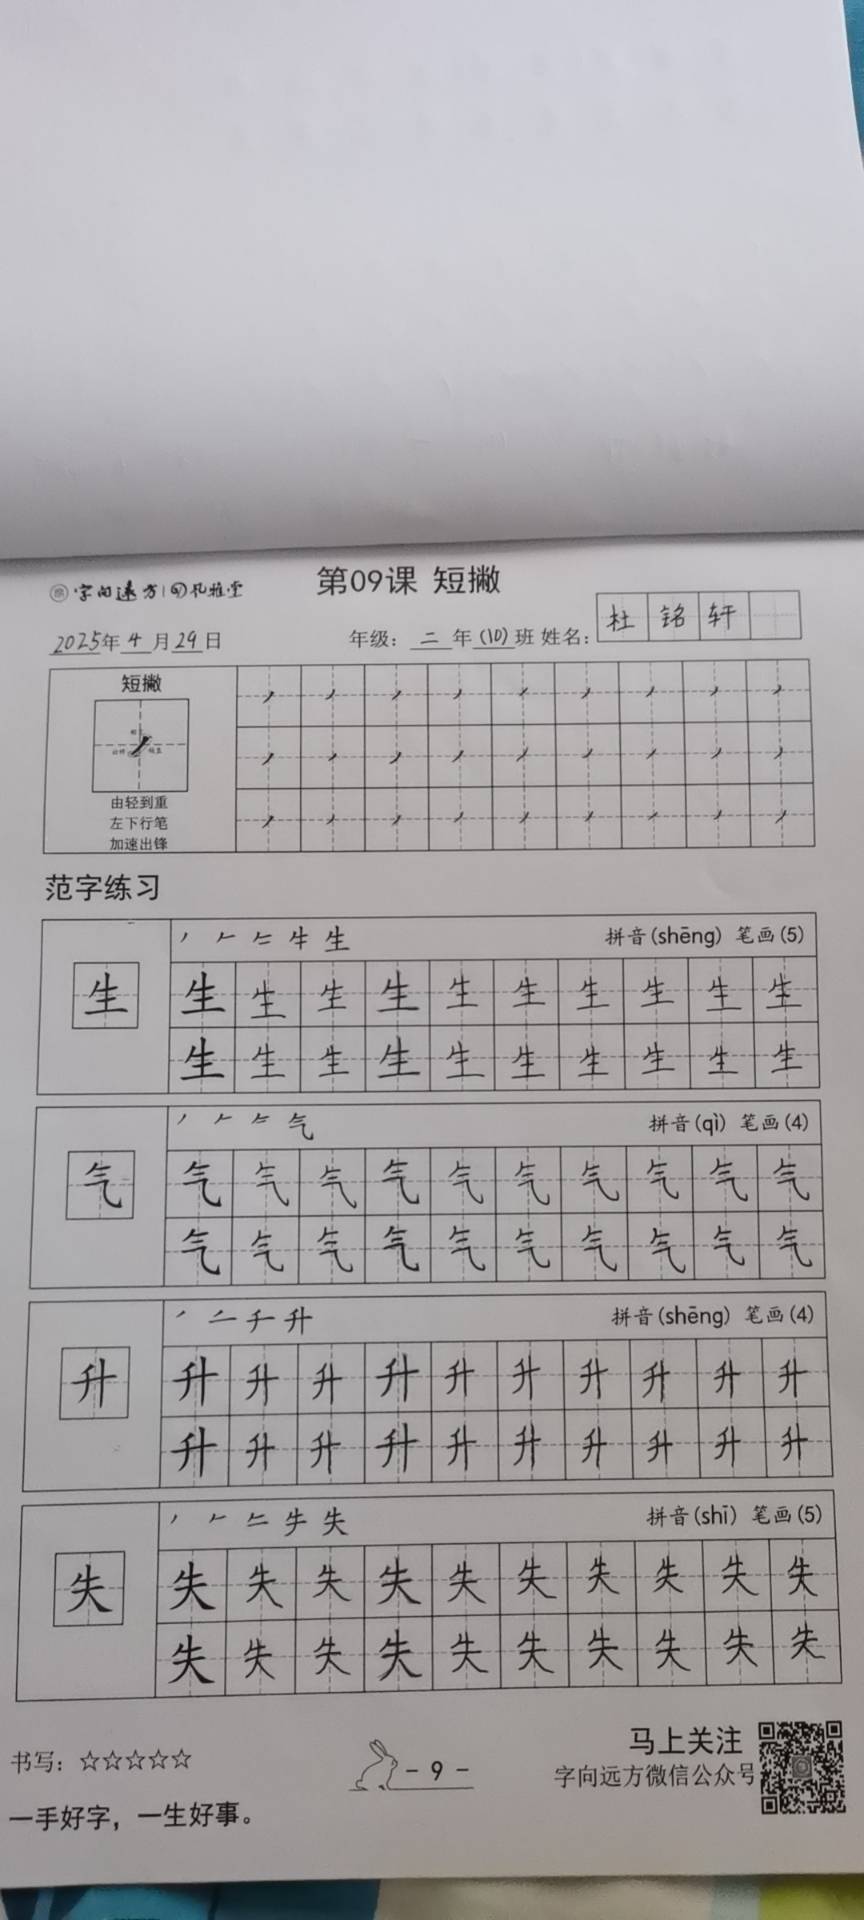 字向远方 孔雅堂
第09课 短撇
2025年4月29日 年级：二年(10)班 姓名：杜铭轩
短撇
由轻到重
左下行笔
加速出锋
范字练习
生 拼音(shēng) 笔画(5)
生 生 生 生 生 生 生 生 生 生 生
生 生 生 生 生 生 生 生 生 生
气 拼音(qì) 笔画(4)
气 气 气 气 气 气 气 气 气 气 气
气 气 气 气 气 气 气 气 气 气
升 拼音(shēng) 笔画(4)
升 升 升 升 升 升 升 升 升 升 升
升 升 升 升 升 升 升 升 升 升
失 拼音(shī) 笔画(5)
失 失 失 失 失 失 失 失 失 失 失
失 失 失 失 失 失 失 失 失 失
书写：☆☆☆☆☆
一手好字，一生好事。
- 9 -
马上关注
字向远方微信公众号